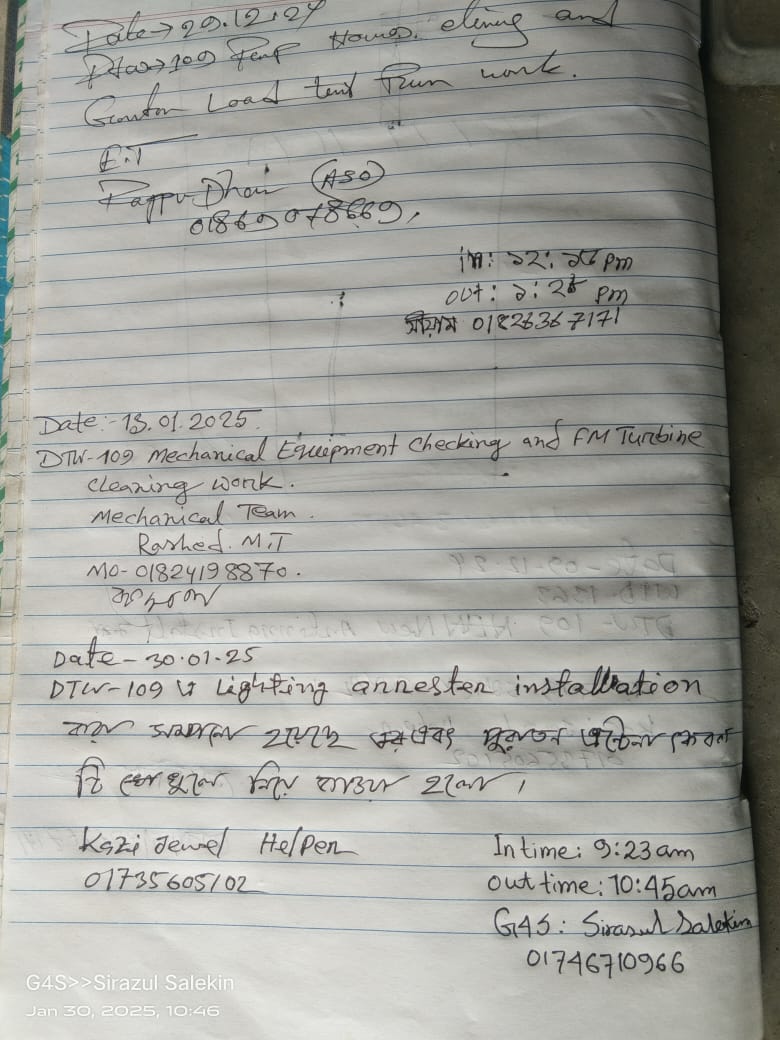 Date→29.12.24
109 Pump House. and
Load test Run work.
E.T
Dhar (ASO)
01869078669,
in: ১২: pm
out: ১: pm
01826367171
Date:-13.01.2025.
DTW-109 Mechanical Equipment Checking and FM Turbine
cleaning work.
Mechanical Team.
Rashed. M.T
Mo-01824198870.
Date-30.01.25
DTW-109 এ Lighting arrester installation
কাজ সম্পন্ন হয়েছে এবং পুরাতন
টি খুলে নিয়ে যাওয়া হলো।
Kazi Jewel Helper
01735605102
In time: 9:23am
Out time: 10:45am
G4S: Sirazul Salekin
01746710966
G4S>>Sirazul Salekin
Jan 30, 2025, 10:46